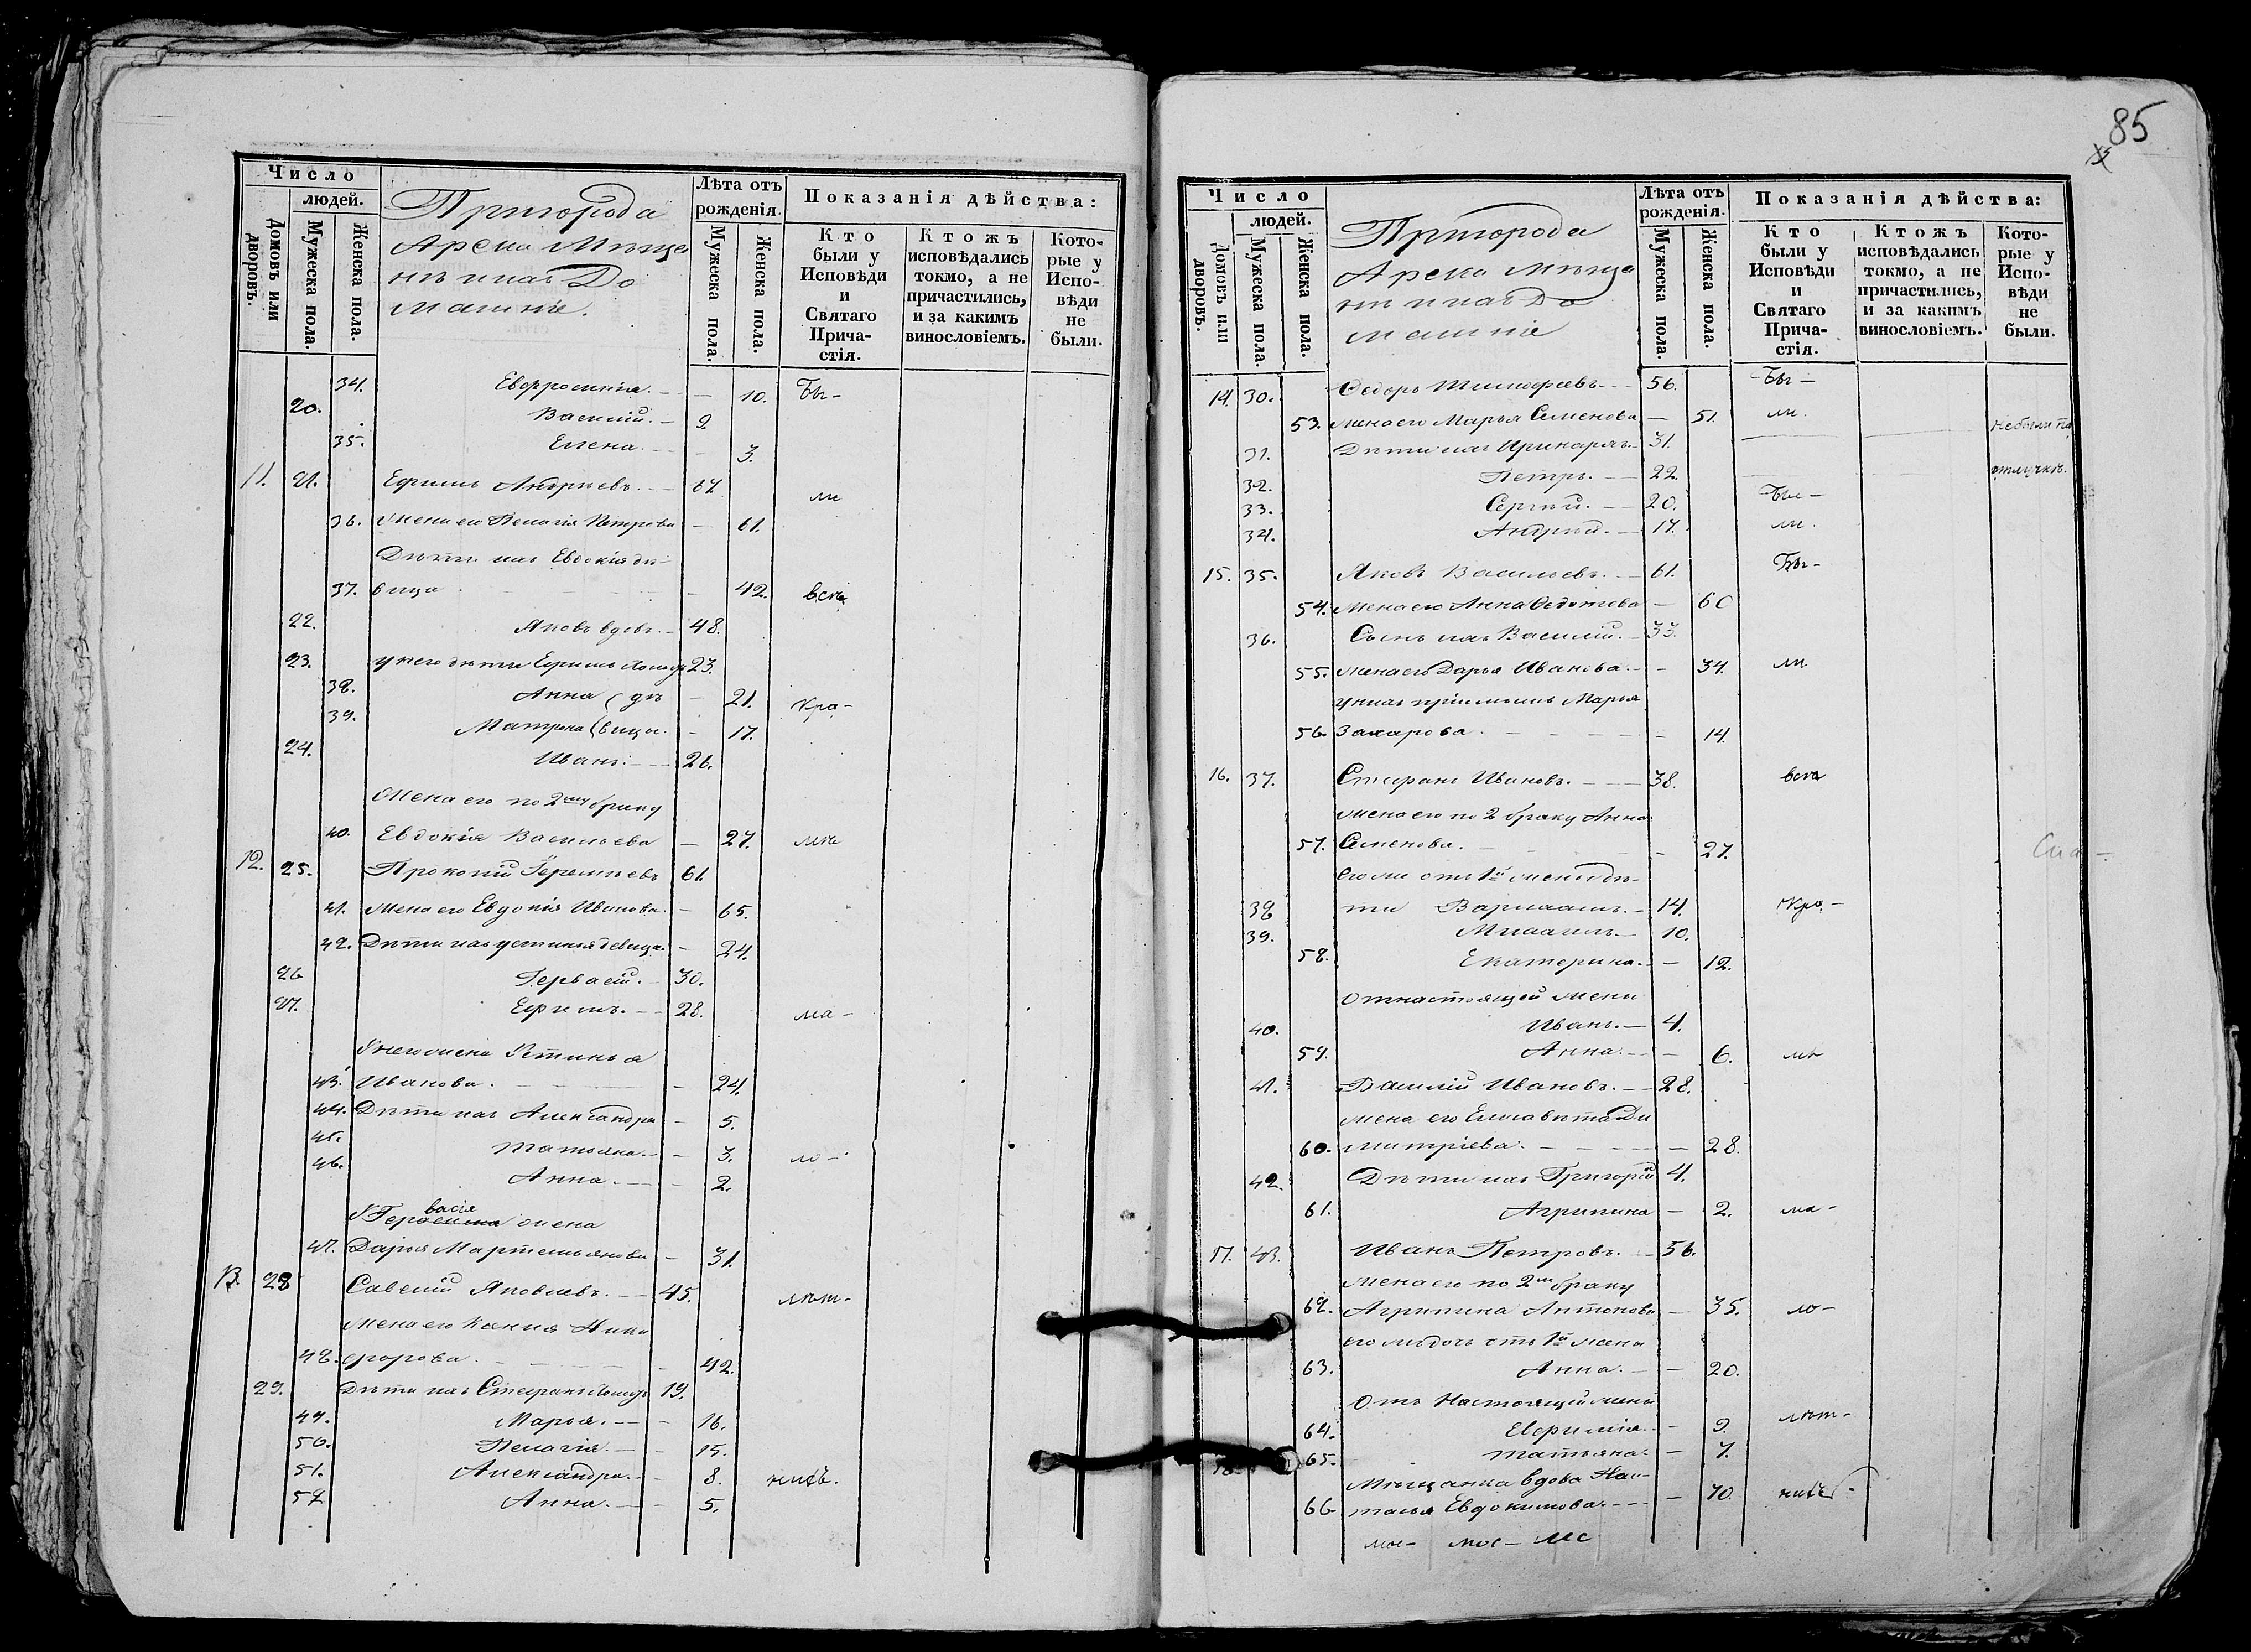 Число
людей.
Домовъ или дворовъ.
Мужеска пола.
Женска пола.
Пригорода
Арска Мѣща
нъ и ихъ До
машніе.
Лѣта отъ рожденія.
Мужеска пола.
Женска пола.
Показанія дѣйства:
Кто были у Исповѣди и Святаго Прича-стія.
Ктожъ исповѣдались токмо, а не причастились, и за какимъ винословіемъ.
Кото-рые у Испо-вѣди не были.
34. Евфросинія. — — 10. Бы-
20. Василій. — 9.
35. Елена. — 3.
11. 21. Ефимъ Андреевъ. — 67. ли
36. Жена его Пелагія Петрова — 61.
Дѣти ихъ Евдокія дѣ-
37. вица — 42. всѣ
22. Яковъ вдовъ. — 48.
23. у него дѣти Ефимъ холостъ 23.
38. Анна (дѣ — 21. кро-
39. Матрона (вицы. — 17.
24. Иванъ. — 26.
Жена его по 2му браку
40. Евдокія Васильева — 27. мѣ
12. 25. Прокопій Еремѣевъ 61.
41. Жена его Евдокія Иванова. — 65.
42. Дѣти ихъ Устинья девица. — 24.
26 Герваcій. — 30.
27. Ефимъ. — 28. ма-
У него жена Устинья
43. Иванова. — 24.
44. Дѣти ихъ Александра — 5.
45. Татьяна. — 3. ло-
46. Анна. — 2.
васія
У Гер жена
47. Дарья Мартемьянова — 31.
13. 28 Савелій Яковлевъ. — 45. лѣт-
Жена его Ксенія Ники
48. форова. — 42.
29. Дѣти ихъ Стефанъ холостъ 19.
49. Марья. — — 16.
50. Пелагія. — — 15.
51. Александра. — 8. нихъ.
52 Анна. — — 5.
85
Число
людей.
Домовъ или дворовъ.
Мужеска пола.
Женска пола.
Пригорода
Арска мѣща
нъ и ихъ До
машніе
Лѣта отъ рожденія.
Мужеска пола.
Женска пола.
Показанія дѣйства:
Кто были у Исповѣди и Святаго Прича-стія.
Ктожъ исповѣдались токмо, а не причастились, и за какимъ винословіемъ.
Кото-рые у Испо-вѣди не были.
14. 30. Ѳедоръ Тимофеевъ — 56. Бы —
53. жена его Марья Семенова — 51. ли.
31. Дѣти ихъ Иринархъ — 31. не были по
32. Петръ. — 22. отлучкѣ.
33. Сергѣй. — 20. Бы —
34. Андрей. — 17. ли.
15. 35. Яковъ Васильевъ. — 61. Бы-
54. Жена его Анна Ѳедотова — 60
36. Сынъ ихъ Василій. — 33.
55. жена его Дарья Иванова. — 34. ли
у нихъ пріемышъ Марья
56. Захарова. — 14.
16. 37. Стефанъ Ивановъ. — 38. всѣ
жена его по 2 браку Анна
57. Семенова. — 27.
его же отъ 1й жены дѣ-
38 ти Варлаамъ. — 14. кро-
39. Михаилъ. — 10.
58. Екатерина. — — 12.
От настоящей жены
40. Иванъ. — 4.
59. Анна. — — 6. мѣ
41. Василій Ивановъ. — 28.
жена его Елисавета Ди
60. митріева. — 28.
42. Дѣти ихъ Григорій 4.
61. Агрипина — 2. ма-
17. 43. Иванъ Петровъ. — 56.
жена его по 2му браку
62. Агрипина Антонова — 35. ло-
его же дочь отъ 1й жены
63. Анна. — — 20.
Отъ Настоящей жены
64. Евфимія. — 9. лѣт-
65. Татьяна. — 7.
18. Мѣщанка вдова На-
66 талья Евдокимова. — 70. нихъ.